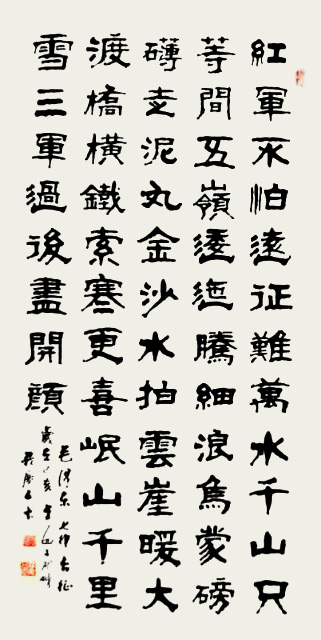 紅軍不怕遠征難萬水千山只
等間五嶺逶迤騰細浪烏蒙磅
礴走泥丸金沙水拍雲崖暖大
渡橋橫鐵索寒更喜岷山千里
雪三軍過後盡開顏
毛澤東七律長征